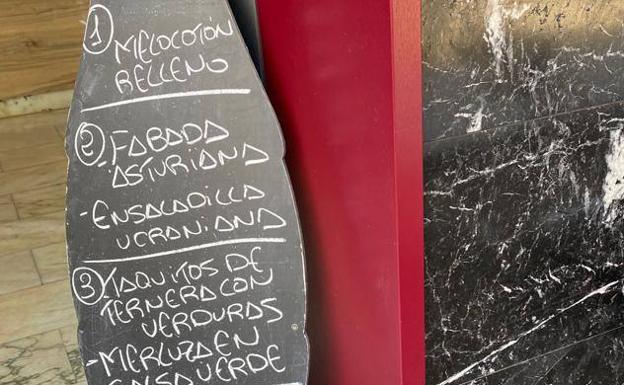 ① MELOCOTÓN
RELLENO
② -FABADA
ASTURIANA
-ENSALADILLA
UCRANIANA
③ TAQUITOS DE
TERNERA CON
VERDURAS
-MERLUZA EN
SALSA VERDE